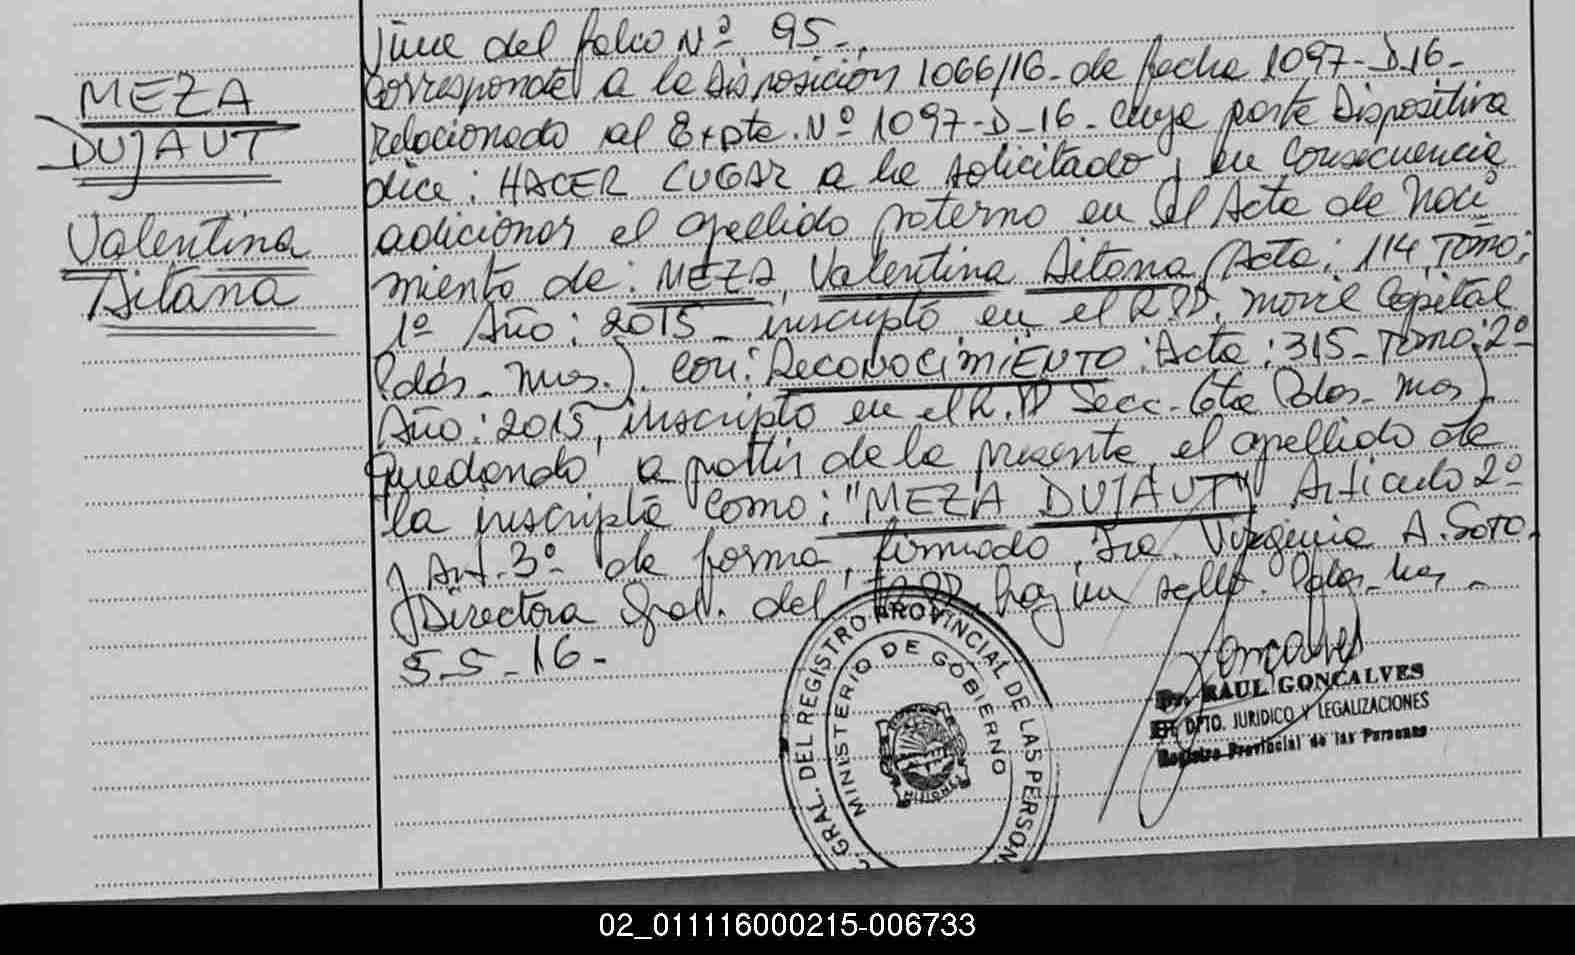 Viene del folio Nº 95-.
MEZA
DUJAUT
Valentina
Aitana
Corresponde a la Disposición 1066/16- de fecha 1097-D-16-
relacionado al Expte. Nº 1097-D-16- cuya parte Dispositiva
dice: HACER LUGAR a lo solicitado, en consecuencia
adicionar el apellido paterno en el Acta de Naci
miento de: MEZA, Valentina Aitana, Acta: 114, Tomo:
1º Año: 2015- inscripto en el R.PP. movil Capital
Pdas- Mns.). con: RECONOCIMIENTO: Acta: 315- Tomo: 2º
Año: 2015, inscripto en el R.PP Secc- 6ta Pdas- Mns)
quedando a partir de la presente, el apellido de
la inscripta como: "MEZA DUJAUT" Articulo 2º
y Art. 3º de forma, firmado, Dra. Virginia A. Soto.
Directora Gral. del R.PP, hay un sello. Pdas- Mns-
5-5-16-
GRAL. DEL REGISTRO PROVINCIAL DE LAS PERSON
MINISTERIO DE GOBIERNO
MISIONES
Goncalves
Dr. RAUL GONCALVES
DPTO. JURIDICO Y LEGALIZACIONES
Registro Provincial de las Personas
02_011116000215-006733